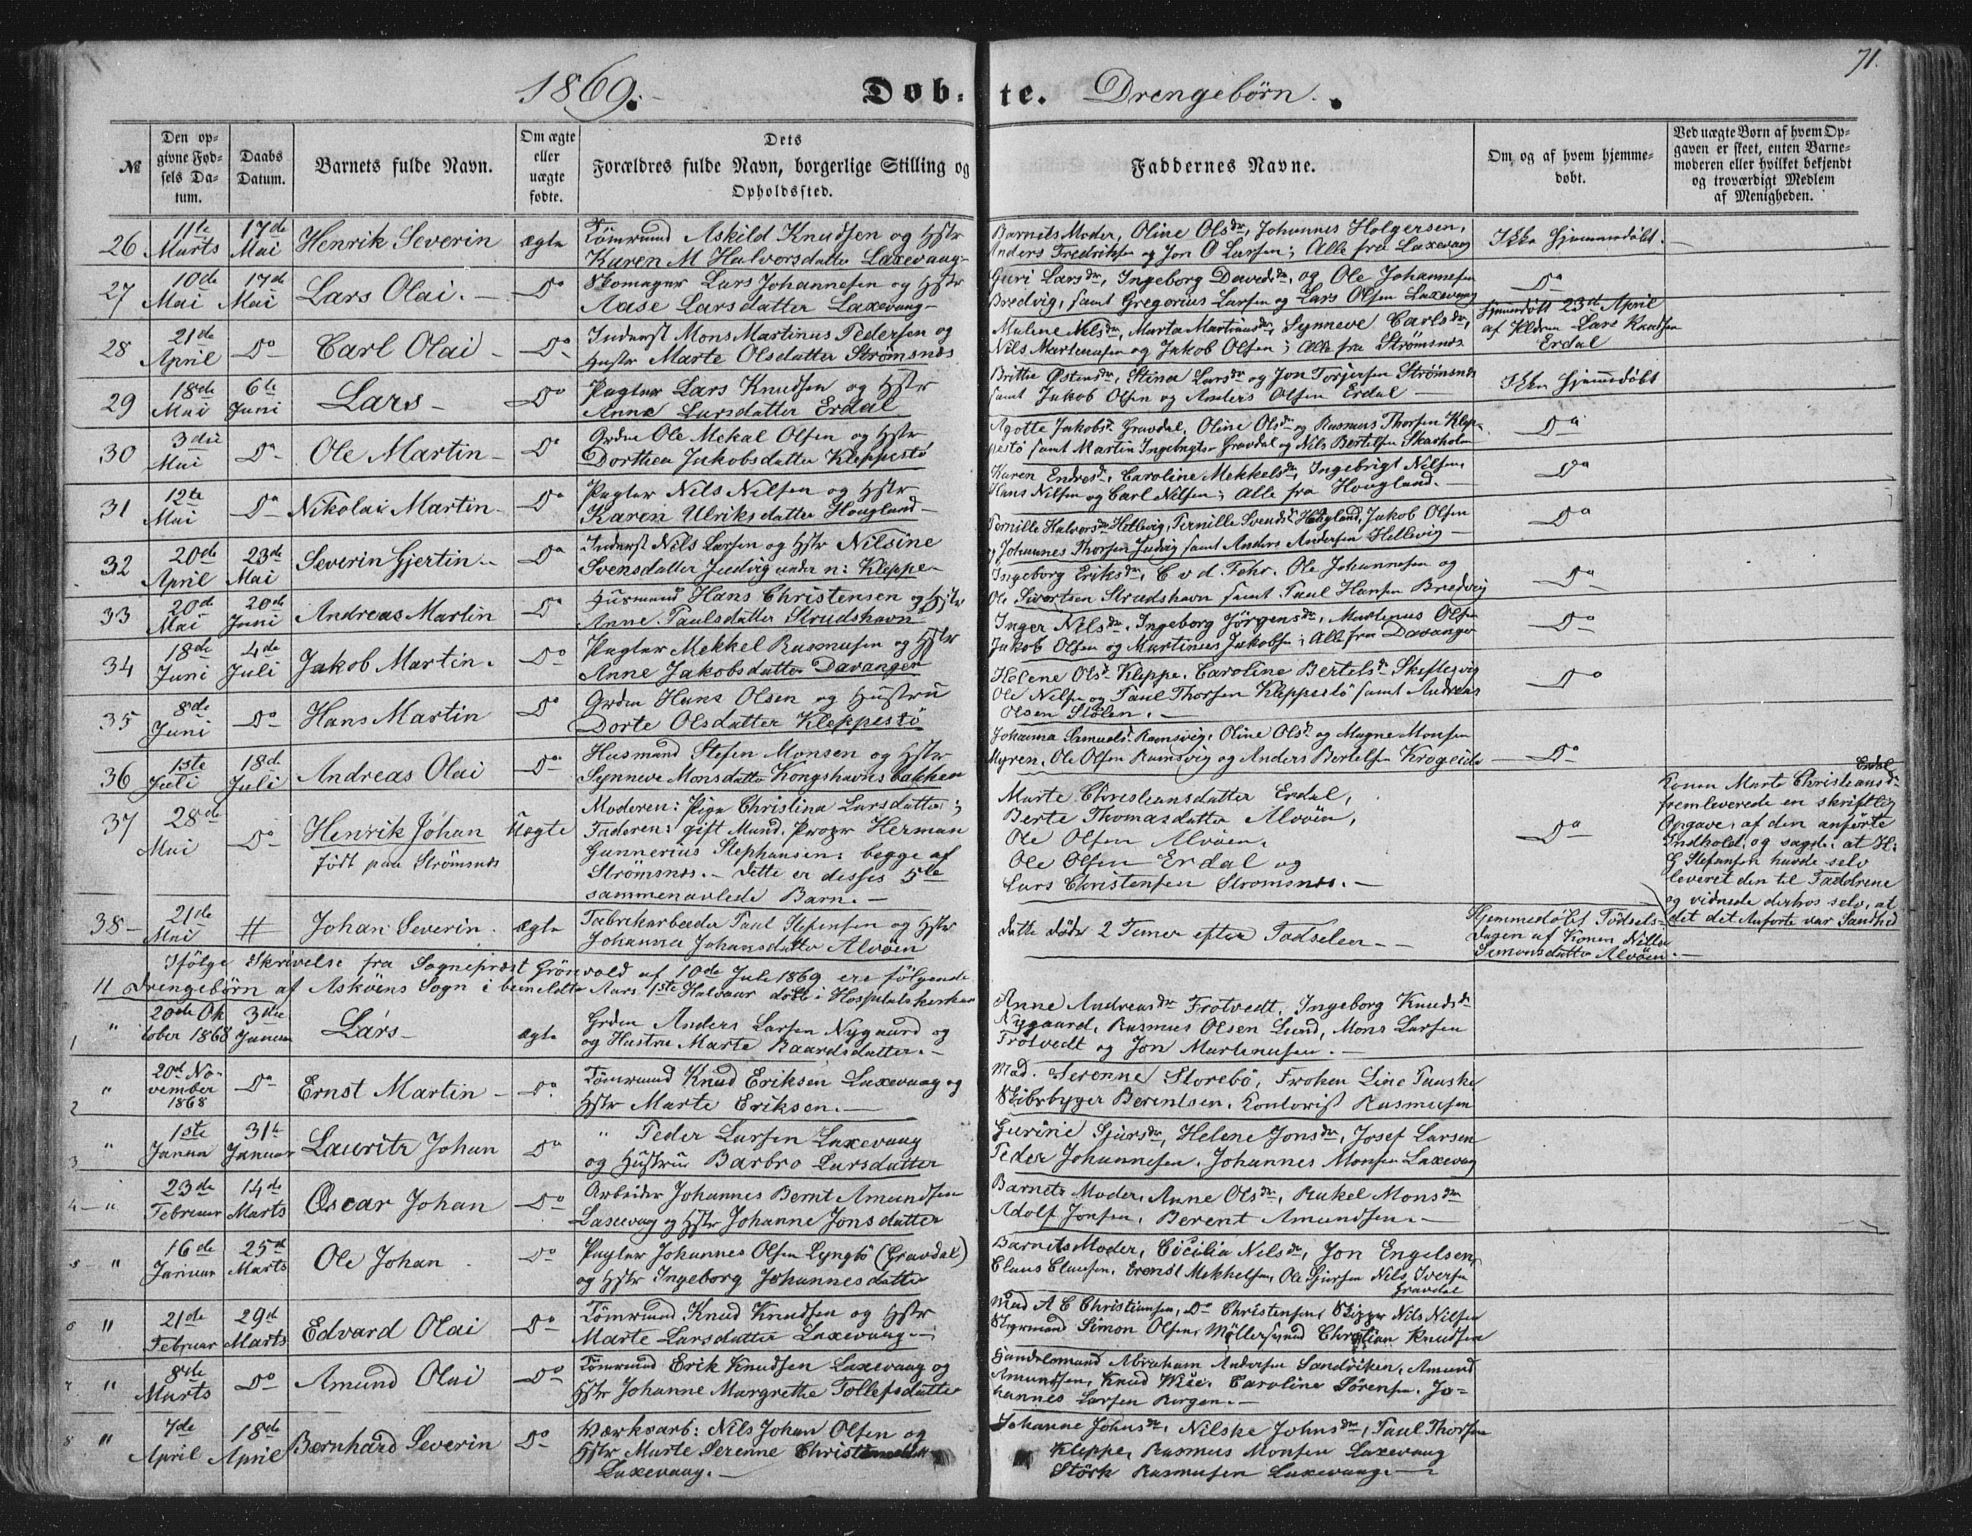 71.
1869.
Døb-te. Drengebørn.
№
Den opgivne Fødsels Datum.
Daabs Datum.
Barnets fulde Navn.
Om ægte eller uægte fødte.
Dets Forældres fulde Navn, borgerlige Stilling og Opholdssted.
Faddernes Navne.
Om og af hvem hjemmedøbt.
Ved uægte Børn af hvem Opgaven er skeet, enten Barnemoderen eller hvilket bekjendt og troværdigt Medlem af Menigheden.
26 11te Marts 17de Mai Henrik Severin ægte
Tømrmd Askild Knudsen og Hstr
Karen M Halvorsdatter Laxevaag
Barnets Moder, Oline Olsdr, Johannes Holgersen,
Anders Fredriksen og Jon O Larsen; Alle fra Laxevaag
Ikke Hjemmedøbt.
27 10de Mai 17de Mai Lars Olai. Do
Skomager Lars Johannesen og Hstr
Aase Larsdatter Laxevaag
Guri Larsdr, Ingeborg Davidsdr, og Ole Johannesen
Bredvig, samt Gregorius Larsen og Lars Olsen Laxevaag
Do
28 21de April Do Carl Olai Do
Inderst Mons Martinus Pedersen og
Hustr Marte Olsdatter Strømsnes
Malene Nilsdr, Marta Martinusdr, Synneve Carlsdr,
Nils Martinusen og Jakob Olsen; Alle fra Strømsnes
Hjemmedøbt 23de April
af Kldren Lars Knudsen
Erdal
29 18de Mai 6te Juni Lars Do
Pagter Lars Knudsen og Hstr
Anna Larsdatter Erdal
Brithe Østensdr, Stina Larsdr og Jon Torjersen Strømsnes
samt Jakob Olsen og Anders Olsen Erdal
Ikke Hjemmedøbt
30 3die Mai Do Ole Martin Do
Grdm Ole Mekal Olsen og Hstr
Dorthea Jakobsdatter Kleppestø
Agotte Jakobsdr Gravdal, Oline Olsdr og Rasmus Thorsen Kleppestø samt Martin Ingebrigts Gravdal og Nils Bertelsen Skarholm
Do
31 12te Mai Do Nikolai Martin Do
Pagter Nils Nilsen og Hstr
Karen Ulriksdatter Hougland
Karen Endresdr, Caroline Mekkelsdr, Ingebrigt Nilsen,
Hans Nilsen og Carl Nilsen; Alle fra Hougland.
Do
32 20de April 23de Mai Severin Gjertin Do
Inderst Nils Larsen og Hstr Nilsine
Svensdatter Judvig under n: Kleppe
Pernille Halvorsdr Hellevig, Pernille Svendsdr Hougland, Jakob Olsen
og Johannes Thorsen Judvig samt Anders Andersen Hellevig
Do
33 20de Mai 20de Juni Andreas Martin Do
Husmand Hans Christensen og Hstr
Anne Paulsdatter Strudshavn
Ingeborg Eriksdr, C v d Fehr, Ole Johannesen og
Ole Sivertsen Strudshavn samt Paul Hansen Bredvig
Do
34 18de Juni 4de Juli Jakob Martin. Do
Pagter Mekkel Rasmusen og Hstr
Anne Jakobsdatter Davanger
Inger Nilsdr, Ingeborg Jörgensdr, Martenus Olsen
Jakob Olsen og Martinus Jakobsen; Alle fra Davanger
Do
35 8de Juni Do Hans Martin Do
Grdm Hans Olsen og Hustru
Dorte Olsdatter Kleppestø
Helene Olsdr Kleppe, Caroline Bertelsdr Skiftesvig
Ole Nilsen og Paul Thorsen Kleppestø samt Andreas
Olsen Stølen.
Do
36 1ste Juli 18de Juli Andreas Olai Do
Husmand Stefen Monsen og Hstr
Synneve Monsdatter Kongshavnsbakken
Johanna Samuelsdr Ramsvig, Oline Olsdr og Magne Monsen
Myren, Ole Olsen Ramsvig og Anders Bertelsen Krogeide
Do
37 28de Mai Do Henrik Johan Uægte
født paa Strømsnes
Moderen: Pige Christina Larsdatter;
Faderen: gift Mand, Herman
Gunnerius Stephansen: begge af
Strømsnes. Dette er disses 5te
sammenavlede Barn.
Marte Christeansdatter Erdal,
Berte Thomasdatter Alvøen,
Ole Olsen Alvøen,
Ole Olsen Erdal og
Lars Christensen Strømsnes.
Do
Erdal
Konen Marte Christeansdr
fremleverede en skriftlig
Opgave, af den anførte
Indhold, og sagde: at H.
G Stefansen havde selv
leveret den til Faddrene
og vidnede derhos selv, at
det det Anførte var Sandhed
38 21de Mai # Johan Severin. ægte
Fabrikarbeider Paul Stefensen og Hstr
Johanna Johansdatter Alvøen
dette døde 2 Timer efter Fødselen.
Hjemmedøbt Fødsels-
dagen af Konen Nille
Simonsdatter Alvøen.
Ifølge Skrivelse fra Sognepræst Grönvold af 10de Juli 1869 ere følgende
11 Drengebørn af Askøens Sogn i bemeldte Aars 1ste Halvaar døbt i Hospitalskirken
1 " 20de October 1868 3die Januar Lars ægte
Grdm Anders Larsen Nygaard og
og Hustru Marte Baardsdatter.
Anne Andreasdr Frotvedt, Ingeborg Knudsdr
Nygaard, Rasmus Olsen Lund, Mons Larsen
Frotvedt og Jon Martinusen.
2 " 20de November 1868 Do Ernst Martin Do
Tømrmnd Knud Eriksen Laxevaag og
Hstr Marte Eriksen.
Mad. Serenne Storebø, Frøken Line Fauske
Skibsbyger Berentsen, Kontorist Rasmusen
3 " 1ste Januar 31te Januar Lauritz Johan Do
" Peder Larsen Laxevaag
og Hustru Barbro Larsdatter
Gurine Sjursdr, Helene Jonsdr, Josef Larsen
Peder Johannesen, Johannes Monsen Laxevaag
4 " 23de Februar 14de Marts Oscar Johan Do
Arbeider Johannes Bernt Amundsen
Laxevaag og Hstr Johanne Jonsdatter
Barnets Moder, Anne Olsdr, Rakel Monsdr
Adolf Jonsen, Berent Amundsen.
5 " 16de Januar 25de Marts Ole Johan Do
Pagter Johannes Olsen Lyngbø (Gravdal)
og Hstr Ingeborg Johannesdatter
Barnets Moder, Cicilia Nilsdr, Jon Engelsen,
Claus Clausen, Erenst Mekkelsen, Ole Sjursen Nils Iversen
Gravdal
6 " 21de Februar 29de Marts Edvard Olai Do
Tømrmnd Knud Knudsen og Hstr
Marte Larsdatter Laxevaag
Mad A C Christiansen, Do Christensen, Skipper Nils Nilsen
Styrmand Simon Olsen, Møllersvend Christian Knudsen
7 " 8de Marts Do Amund Olai Do
Tømrmnd Erik Knudsen Laxevaag og
Hstr Johanne Margrethe Tollefsdatter
Handelsmand Abraham Andersen Sandviken, Amund
Amundsen, Knud Wiie, Caroline Sörensen, Johannes Larsen Bergen.
8 " 7de April 18de April Bernhard Severin Do
Værksarb: Nils Johan Olsen og
Hstr Marte Serenne Christensdatter
Laxevaag.
Johanne Johnsdr, Nilske Johnsdr, Paul Thorsen
Kleppe, Rasmus Monsen Laxevaag
Störk Rasmusen Laxevaag.